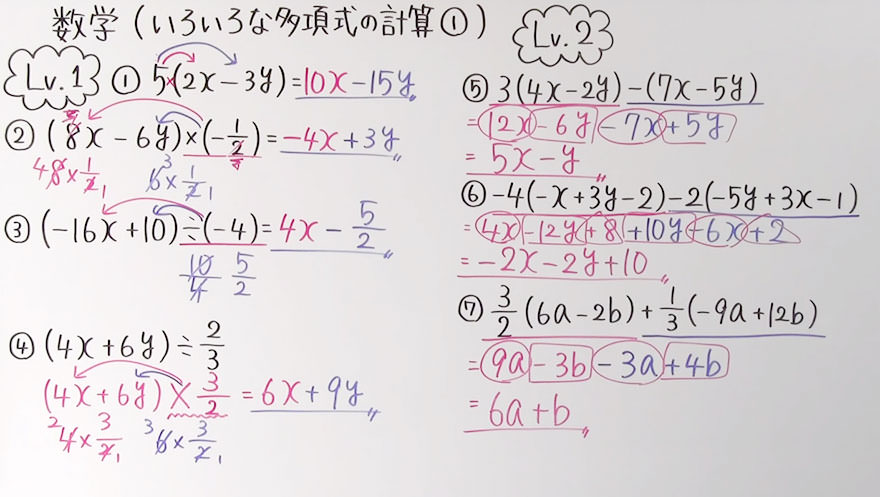 数学(いろいろな多項式の計算①)
Lv.1
① 5(2x-3y)=10x-15y
② (8x-6y)×(-1/2)=-4x+3y
48×1/2 1 6 3×1/2 1
③ (-16x+10)÷(-4)=4x-5/2
10/4 5/2
④ (4x+6y)÷2/3
(4x+6y)×3/2=6x+9y
2 4×3/2 1 3 6×3/2 1
Lv.2
⑤ 3(4x-2y)-(7x-5y)
=12x-6y-7x+5y
=5x-y
⑥ -4(-x+3y-2)-2(-5y+3x-1)
=4x-12y+8+10y-6x+2
=-2x-2y+10
⑦ 3/2(6a-2b)+1/3(-9a+12b)
=9a-3b-3a+4b
=6a+b